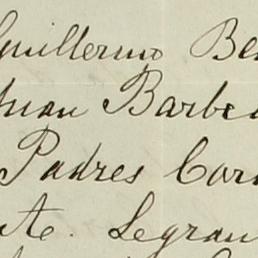 Guillermo Be
Juan Barbe
Padres Cor
Ate. Legran